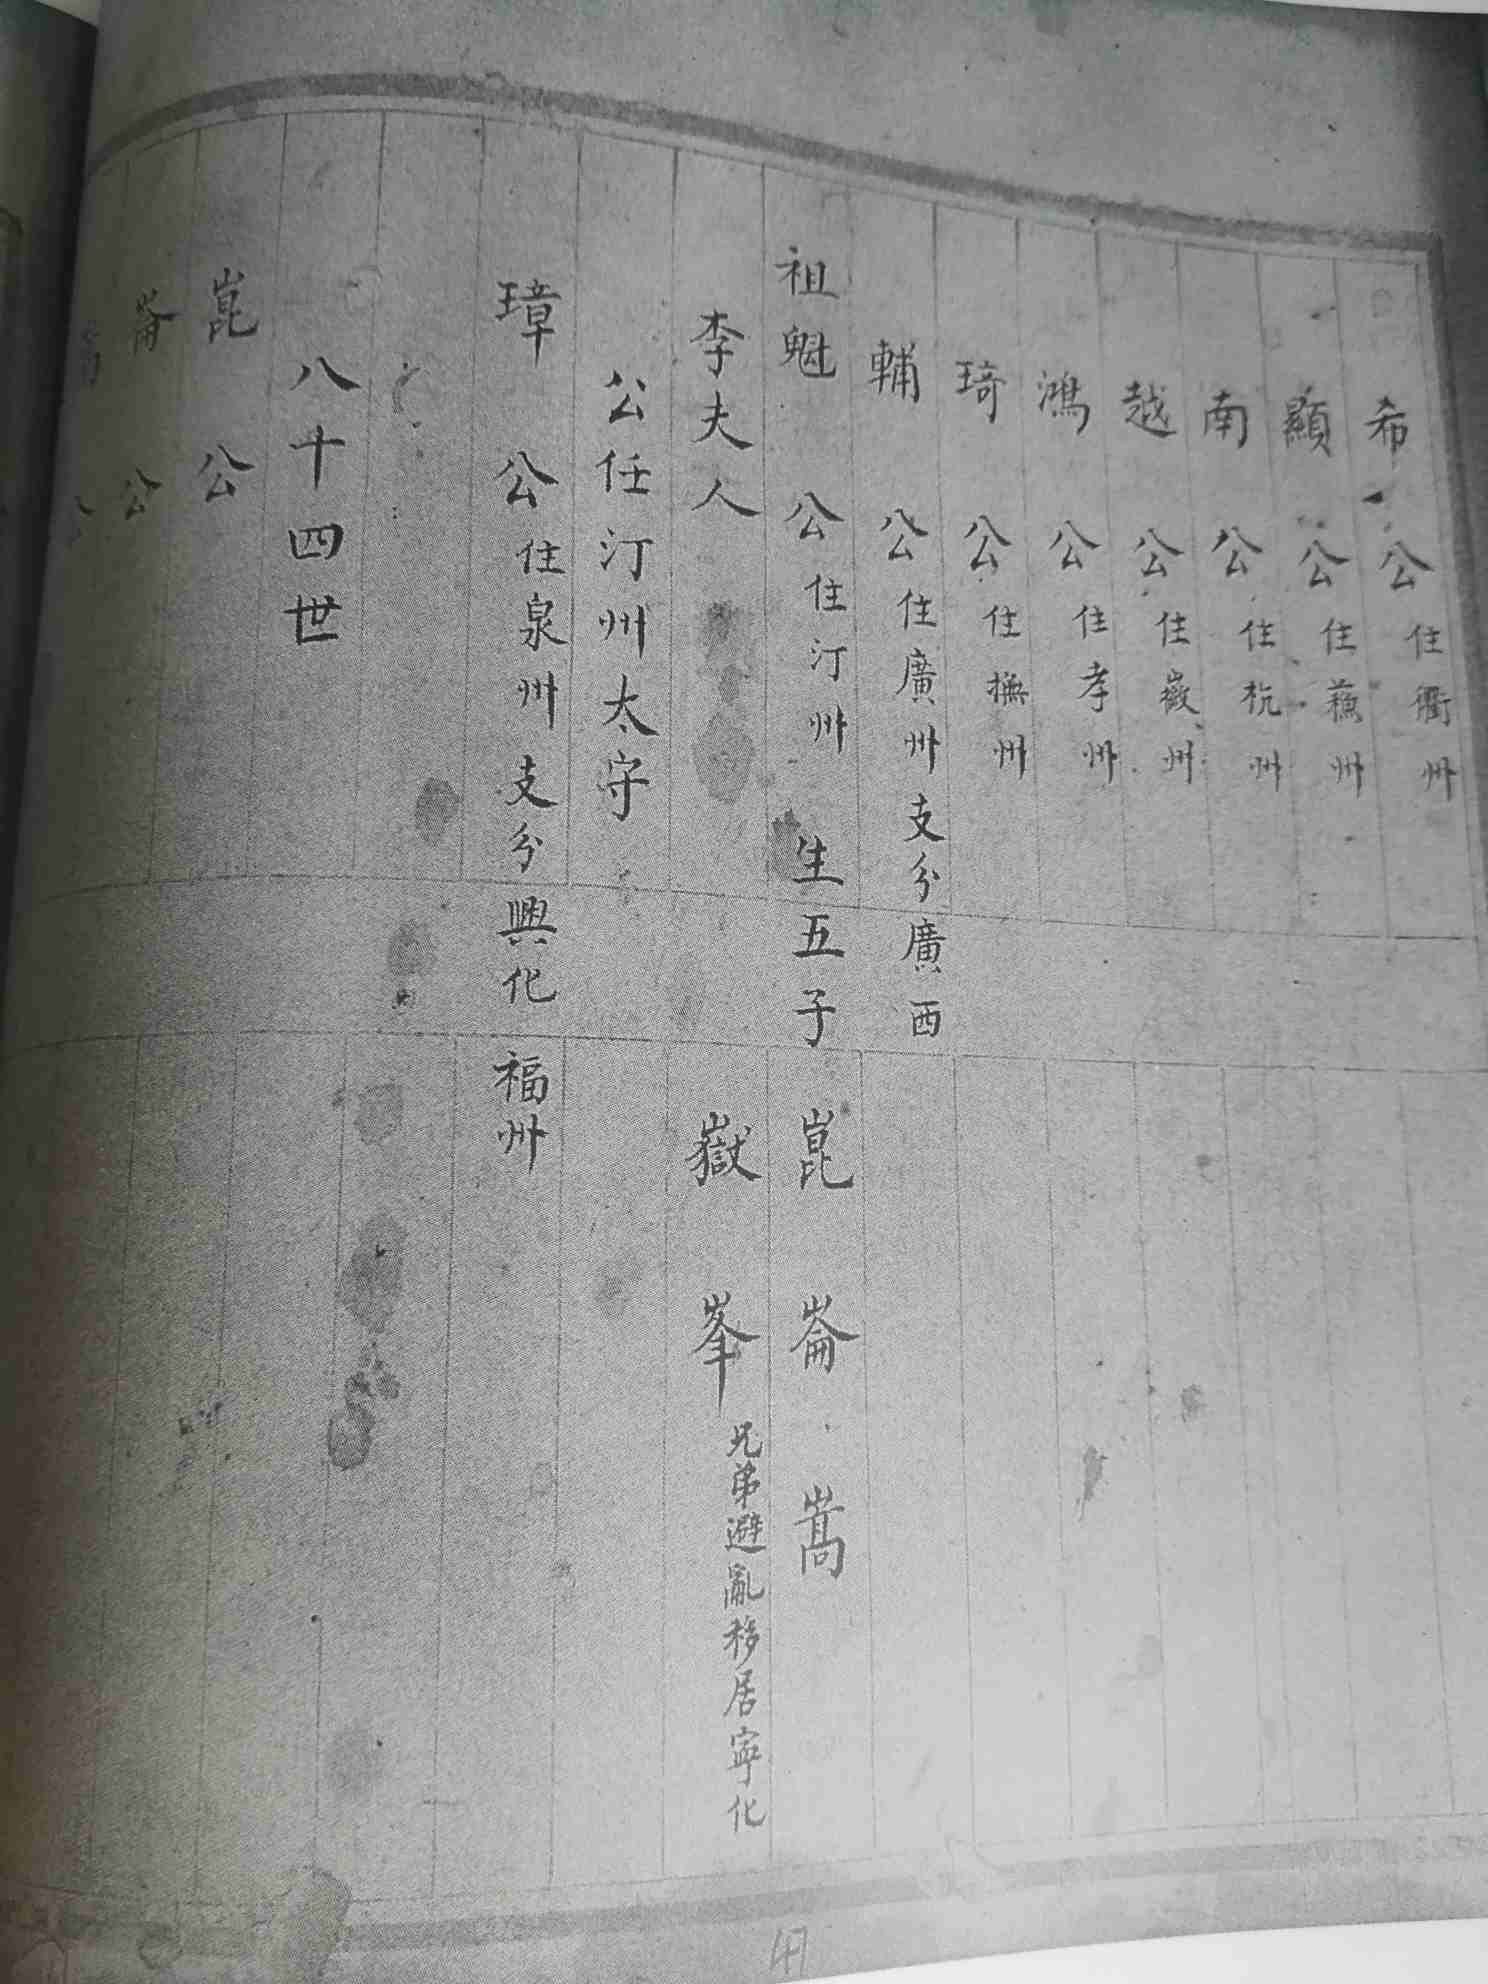 希公住衢州
顯公住蘓州
南公住杭州
越公住徽州
鴻公住孝州
琦公住撫州
輔公住廣州支分廣西
祖魁公住汀州 生五子 崑 崙 嵩
李夫人 嶽 峯 兄弟避亂移居寧化
公任汀州太守
璋公住泉州支分興化福州
八十四世
崑公
崙公
公
47